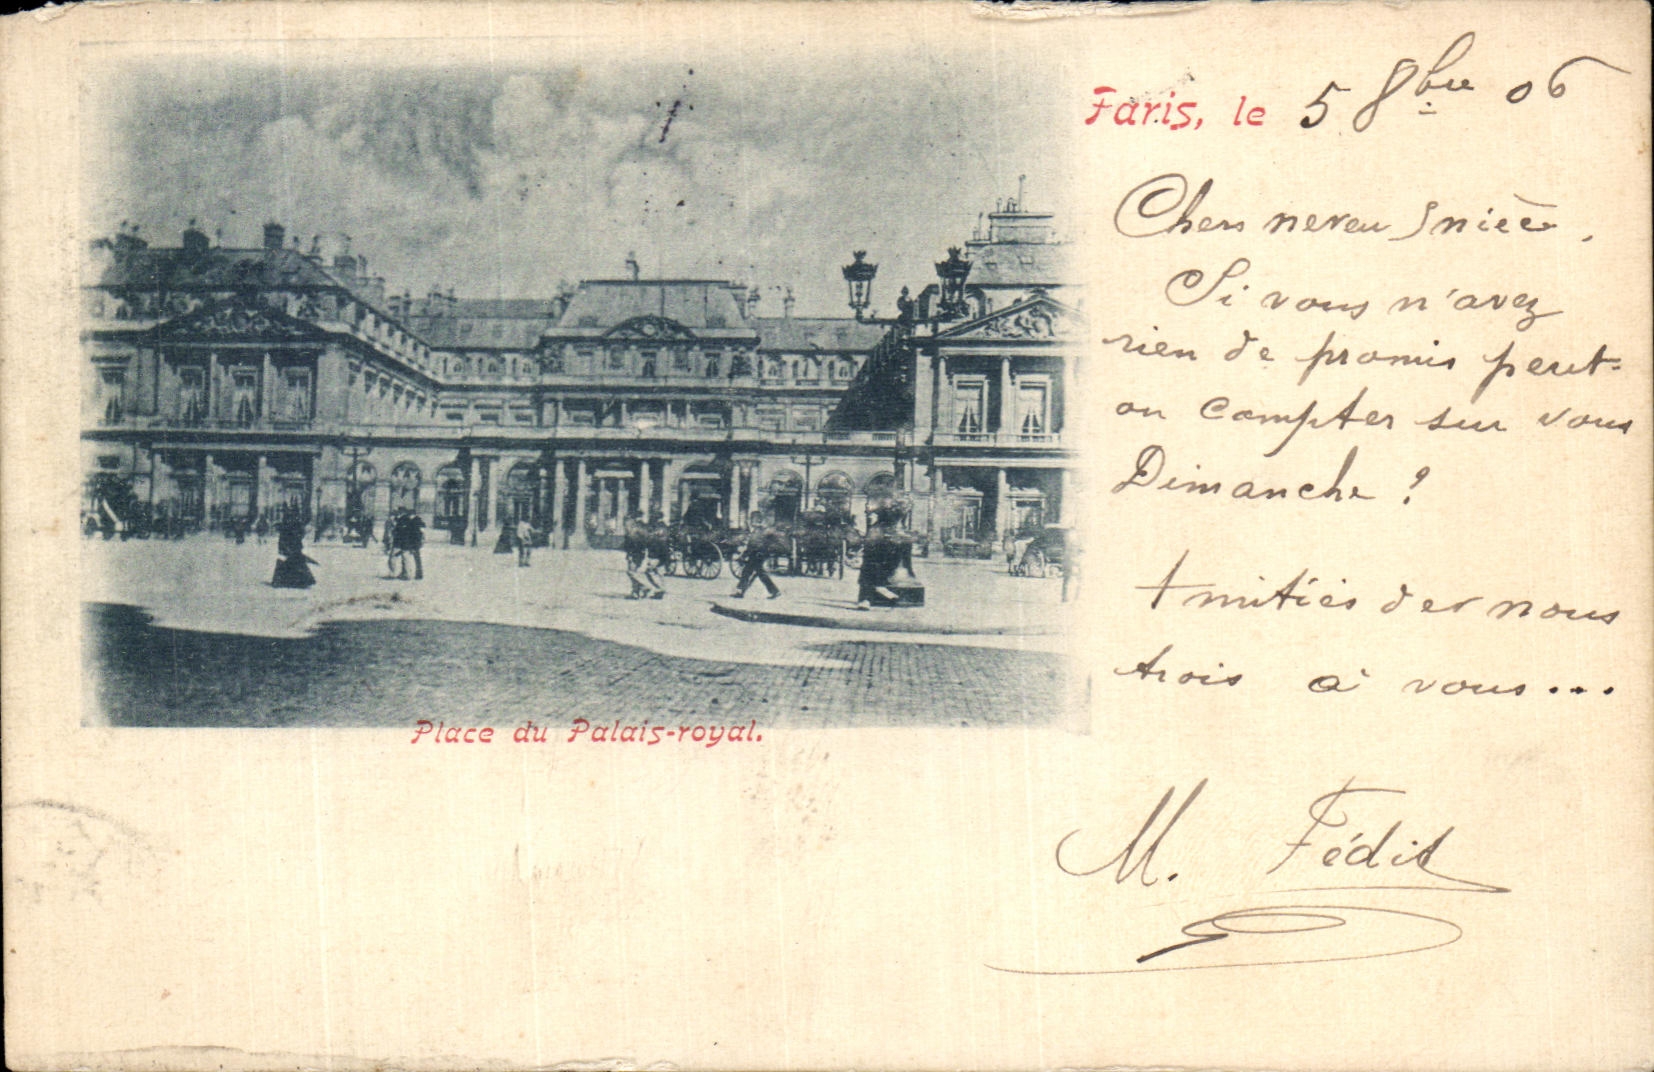 Paris, le 5 8bre 06
Chers neveu & nièce,
Si vous n'avez
rien de promis peut-
on compter sur vous
Dimanche ?
Amitiés de nous
trois à vous...
M. Fédit
Place du Palais-royal.